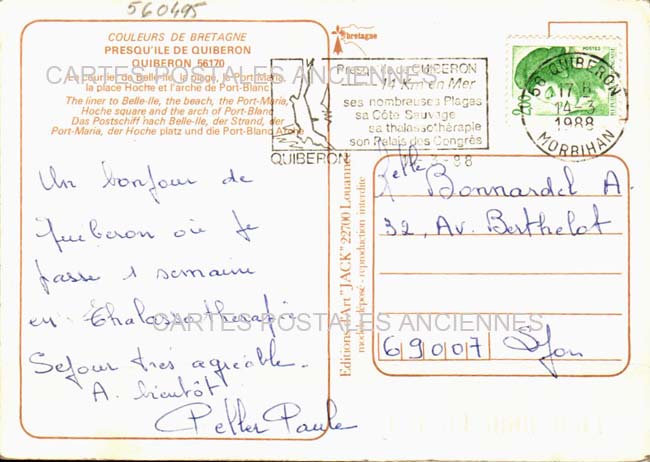 560495
COULEURS DE BRETAGNE
PRESQU'ILE DE QUIBERON
QUIBERON 56170
Le courrier de Belle-Ile, la plage, le Port-Maria,
la place Hoche et l'arche de Port-Blanc
The liner to Belle-Ile, the beach, the Port-Maria,
Hoche square and the arch of Port-Blanc
Das Postschiff nach Belle-Ile, der Strand, der
Port-Maria, der Hoche platz und die Port-Blanc Arche
CARTES POSTALES ANCIENNES
bretagne
Presqu'ile de QUIBERON
14 Km en Mer
ses nombreuses Plages
sa Côte Sauvage
sa thalassothérapie
son Palais des Congrès
QUIBERON
POSTES
2,00
56 QUIBERON
17 H
14-3
1988
MORBIHAN
3-88
Un bonjour de
Quiberon où je
passe 1 semaine
en Thalassothérapie
CARTES POSTALES ANCIENNES
Séjour très agréable.
A bientôt
Peller Paule
Editions d'Art "JACK" 22700 Louannec
modèle déposé - reproduction interdite
Melle
Bonnardel A
32, Av. Berthelot
69007 Lyon